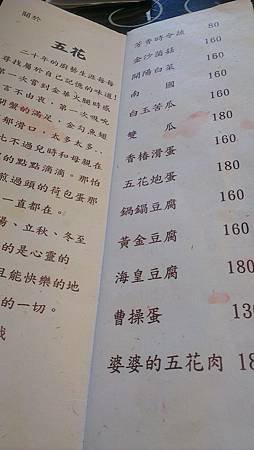 關於
五花
二十年的廚藝生涯每每
尋找屬於自己記憶的味道!
第一次嘗到金華大腿時感
言不由衷,第一次吸吮
蟹的滿足,金勾魚翅
郁滑口,太多太多..
比不過兒時和母親在
的點點滴滴。那怕
煎過頭的荷包蛋那
一直都在。
陽、立秋、冬至
的是心靈的
且能快樂的地
的一切。
芳香時令蔬 80
金沙菌菇 160
開陽白菜 160
南瓜 160
白玉苦瓜 160
雙瓜 180
香椿滑蛋 160
五花炮蛋 180
鍋鎉豆腐 160
黃金豆腐 160
海皇豆腐 180
曹操蛋 130
婆婆的五花肉 18